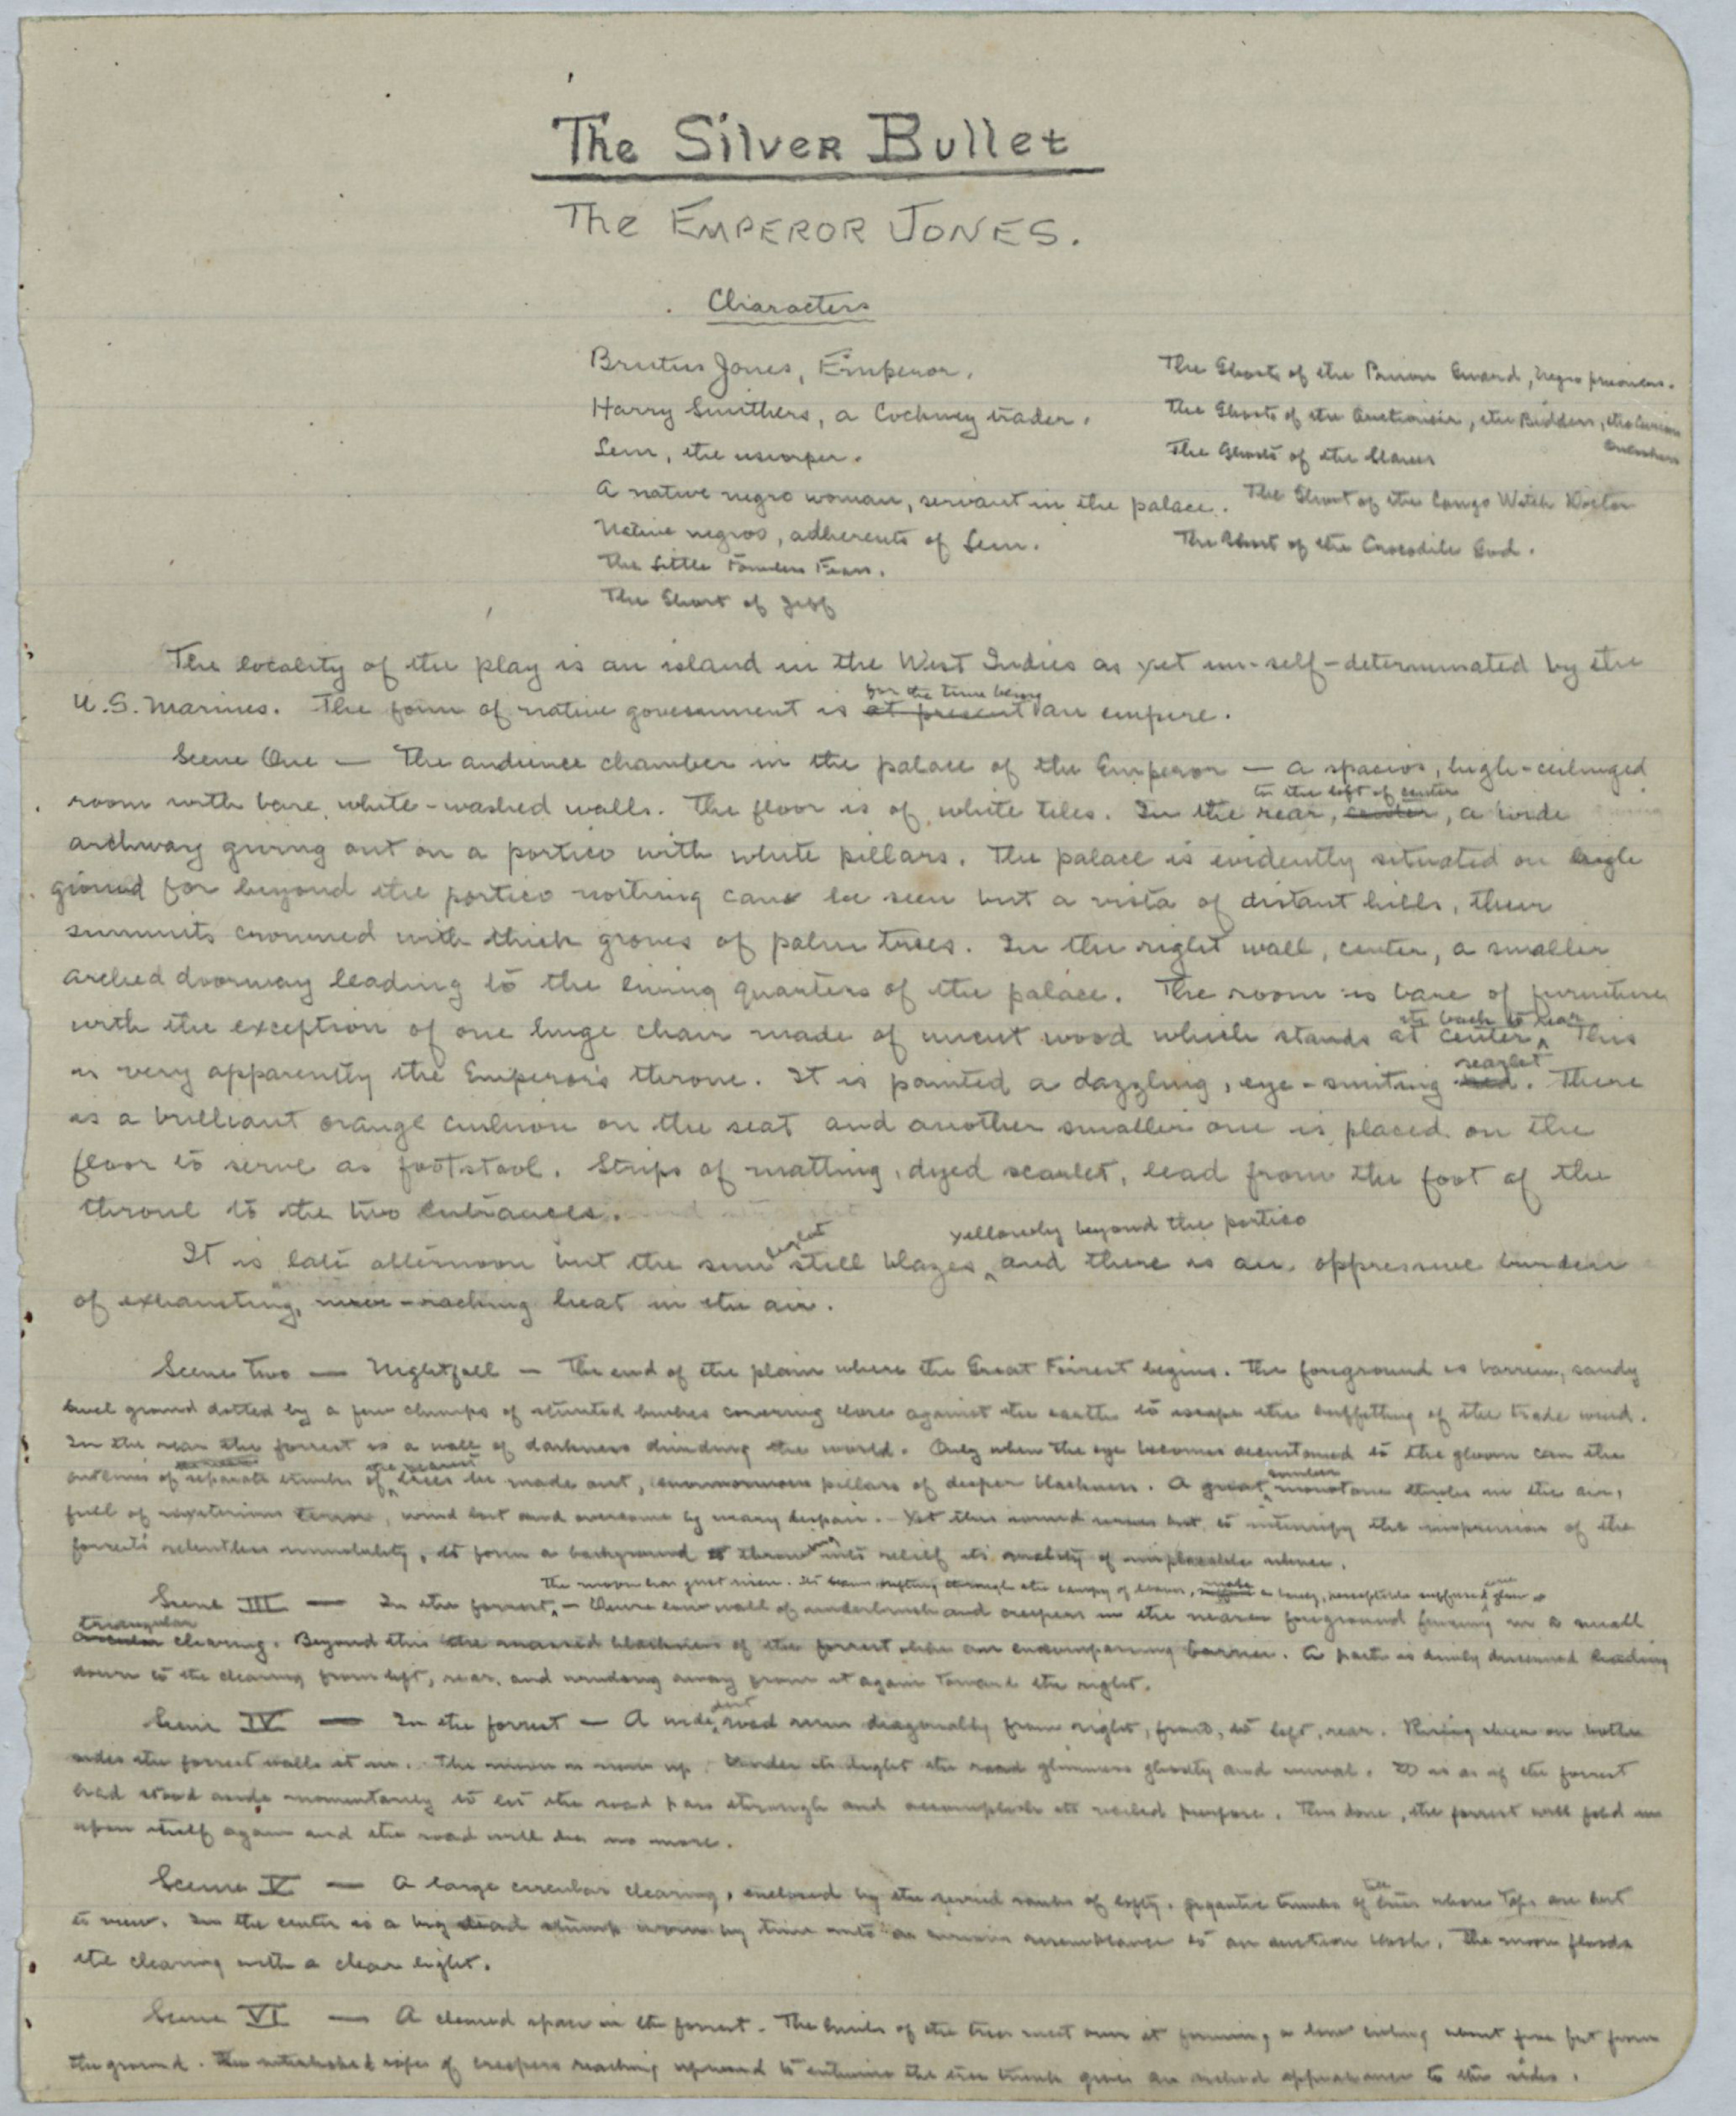 The Silver Bullet
The EMPEROR JONES.
Characters
Brutus Jones, Emperor.
Harry Smithers, a Cockney trader.
Lem, the usurper.
A native negro woman, servant in the palace.
Native negros, adherents of Lem.
The Little Formless Fears.
The Ghost of Jeff
The Ghosts of the Prison Guard, Negro prisoners.
The Ghosts of the Auctioneer, the Bidders, the Curious
Onlookers
The Ghosts of the Slaves
The Ghost of the Congo Witch Doctor
The Ghost of the Crocodile God.
The locality of the play is an island in the West Indies as yet un-self-determinated by the
for the time being
U.S. Marines. The form of native government is at present an empire.
Scene One — The audience chamber in the palace of the Emperor — a spacios, high-ceilinged
to the left of center
room with bare, white-washed walls. The floor is of white tiles. In the rear, center, a wide
archway giving out on a portico with white pillars. The palace is evidently situated on high
ground for beyond the portico nothing can be seen but a vista of distant hills, their
summits crowned with thick groves of palm trees. In the right wall, center, a smaller
arched doorway leading to the living quarters of the palace. The room is bare of furniture
its back to rear
with the exception of one huge chair made of uncut wood which stands at center. This
scarlet
is very apparently the Emperor's throne. It is painted a dazzling, eye-smiting red. There
is a brilliant orange cushion on the seat and another smaller one is placed on the
floor to serve as footstool. Strips of matting, dyed scarlet, lead from the foot of the
throne to the two entrances.
yellowly beyond the portico
It is late afternoon but the sun still blazes and there is an oppressive burden
of exhausting, heat in the air.
Scene Two — Nightfall — The end of the plain where the Great Forrest begins. The foreground is barren, sandy
level ground dotted by a few clumps of stunted bushes cowering close against the earth to escape the buffetting of the trade wind.
In the rear the forrest is a wall of darkness dividing the world. Only when the eye becomes accustomed to the gloom can the
the nearest
outlines of separate trunks of trees be made out, enormous pillars of deeper blackness. A great monotone in the air,
somber
full of mysterious terror, wind lost and overcome by weary despair. Yet this sound serves but to intensify the impression of the
forrest's relentless immobility, to form a background throwing into relief its quality of implacable silence.
The moon has just risen.
Scene III — In the forrest — Dense low wall of underbrush and creepers in the nearer foreground fencing in a small
triangular
clearing. Beyond this the massed blackness of the forrest like an encompassing barrier. A path is dimly discerned leading
down to the clearing from left, rear, and winding away from it again toward the right.
Scene IV — In the forrest — A wide dirt road runs diagonally from right, front, to left, rear. Rising sheer on both
sides the forrest walls it in. The moon is now up. Under its light the road glimmers ghastly and unreal. It is as if the forrest
had stood aside momentarily to let the road pass through and accomplish its veiled purpose. This done, the forrest will fold in
upon itself again and the road will be no more.
Scene V — A large circular clearing, enclosed by the serried ranks of lofty, gigantic trunks of tall trees whose tops are lost
to view. In the center is a big dead stump worn by time into a curious resemblance to an auction block. The moon floods
the clearing with a clear light.
Scene VI — A cleared space in the forrest. The limbs of the trees meet over it forming a low ceiling about five feet from
the ground. The interlocked ropes of creepers reaching upward to entwine the tree trunks gives an arched appearance to the sides.